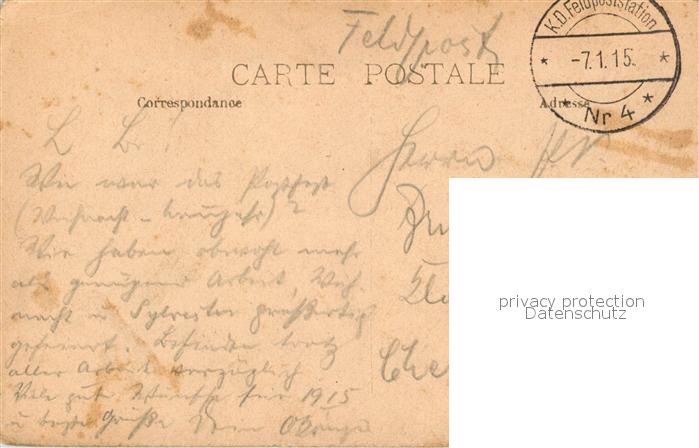 Feldpost
K.D. Feldpoststation
-7.1.15.
Nr 4
CARTE POSTALE
Correspondance
Adresse
L. B.!
Wie war das Postfest
(Weihnacht - Neujahr)?
Wir haben obwohl mehr
als genügend Arbeit, Weih-
nacht u Sylvester
gefeiert. Befinden trotz
aller Arbeit vorzüglich
Viele gute Wünsche für 1915
u beste Grüße Dein
Herrn
privacy protection
Datenschutz